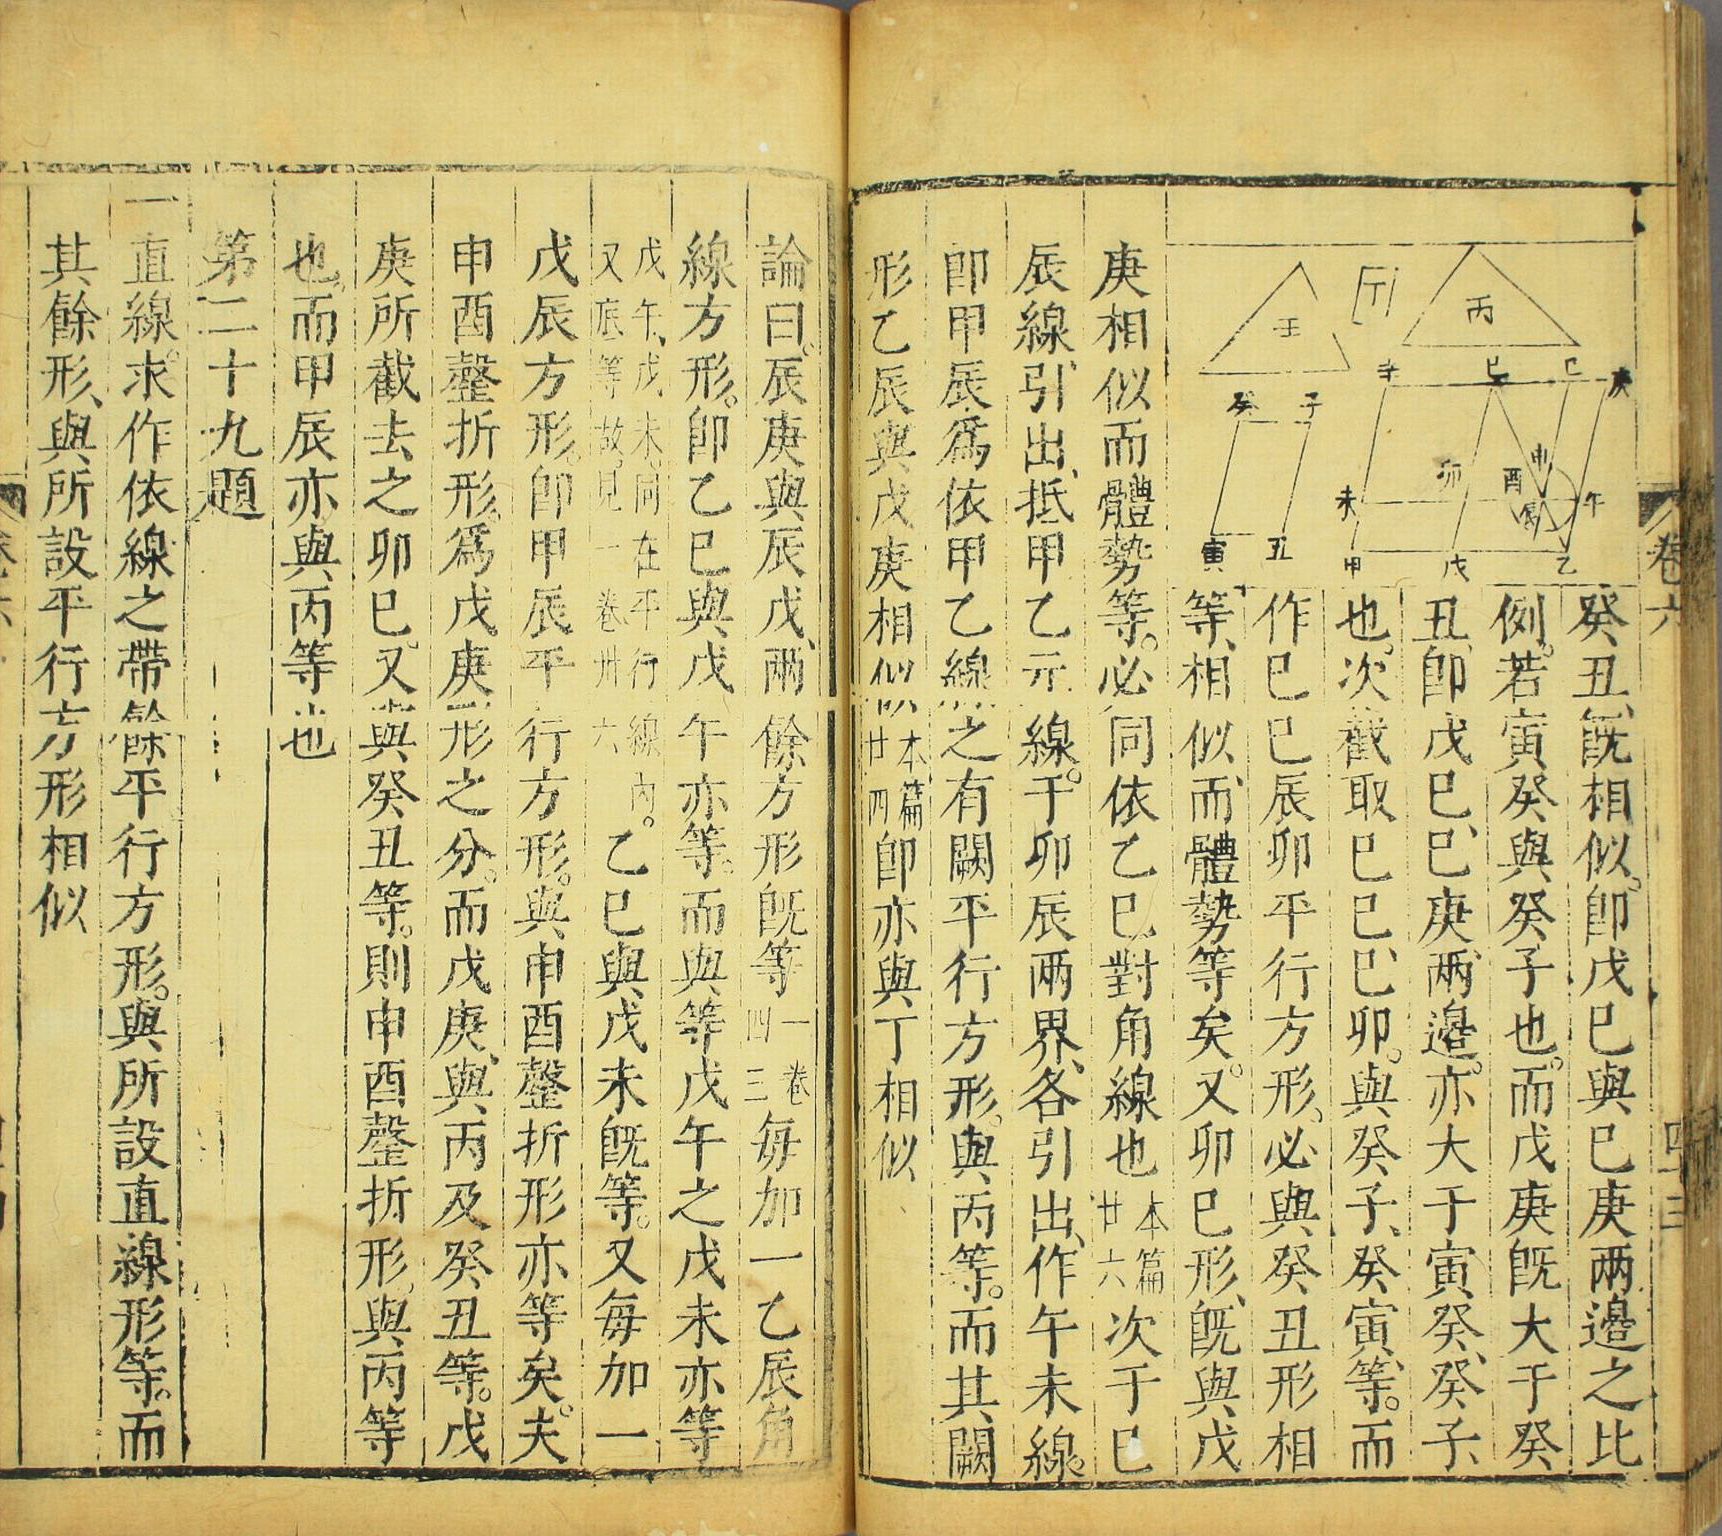 癸丑旣相似。卽戊巳與巳庚兩邊之比
例。若寅癸與癸子也。而戊庚旣大于癸
丑、卽戊巳、巳庚、兩邊。亦大于寅癸、癸子、
也。次截取巳巳、巳卯。與癸子、癸寅、等。而
作巳巳辰卯平行方形。必與癸丑形相
等、相似、而體勢等矣。又卯巳形、旣與戊
庚相似而體勢等。必同依乙巳對角線也本篇廿六次于巳
辰線、引出、抵甲乙元線。于卯辰兩界、各引出、作午未線。
卽甲辰爲依甲乙線之有闕平行方形。與丙等。而其闕
形乙辰與戊庚相似本篇廿四卽亦與丁相似
論曰。辰庚與辰戊、兩餘方形旣等一卷四三每加一乙辰角
線方形。卽乙巳與戊午亦等。而與等戊午之戊未亦等
戊午、戊未。同在平行線內。又底等故。見一卷卅六乙巳與戊未旣等。又每加一
戊辰方形。卽甲辰平行方形。與申酉罄折形亦等矣。夫
申酉罄折形。爲戊庚形之分。而戊庚、與丙及癸丑等。戊
庚所截去之卯巳。又與癸丑等。則申酉罄折形。與丙等
也。而甲辰亦與丙等也
第二十九題
一直線。求作依線之帶餘平行方形。與所設直線形等。而
其餘形、與所設平行方形相似
丙
壬
丁
辛
巳
巳
庚
癸
子
卯
酉
申
午
未
辰
寅
丑
甲
戊
乙
卷六